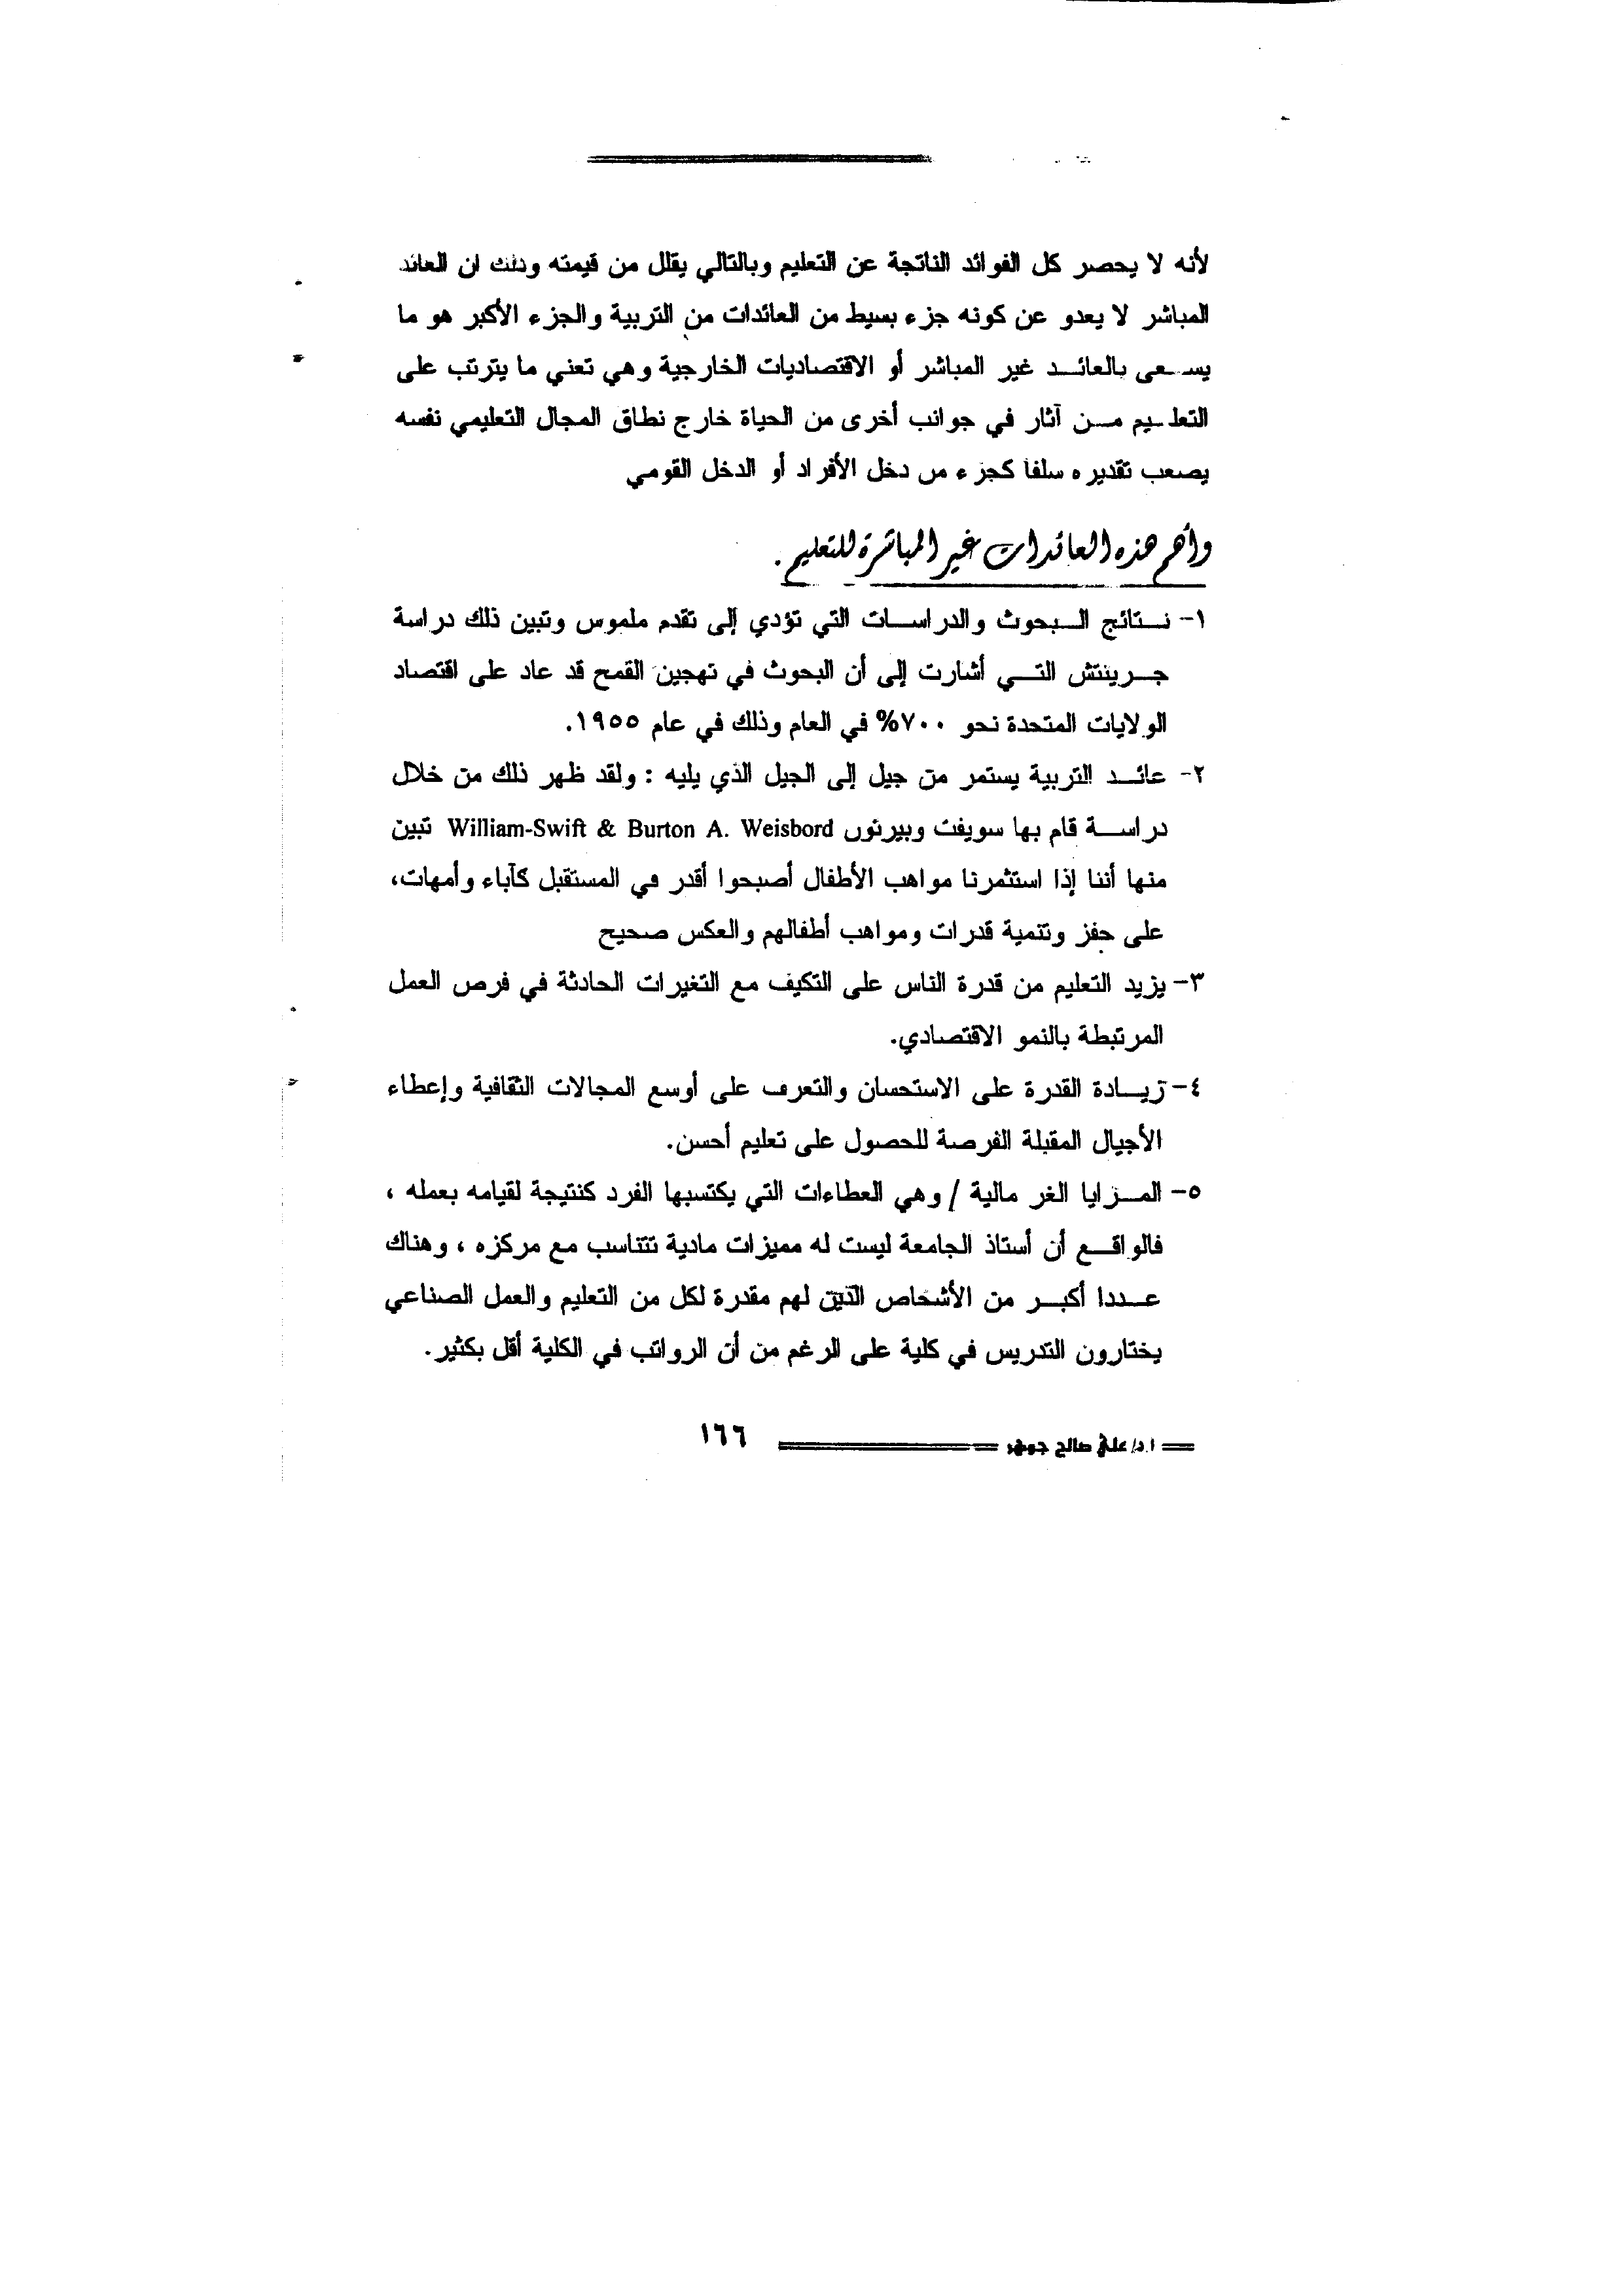 لأنه لا يحصر كل الفوائد الناتجة عن التعليم وبالتالي يقلل من قيمته وذلك ان العائد
المباشر لا يعدو عن كونه جزء بسيط من العائدات من التربية والجزء الأكبر هو ما
يسعى بالعائد غير المباشر أو الاقتصاديات الخارجية وهي تعني ما يترتب على
التعليم من آثار في جوانب أخرى من الحياة خارج نطاق المجال التعليمي نفسه
يصعب تقديره سلفا كجزء من دخل الأفراد أو الدخل القومي
وأهم هذه العائدات غير المباشرة للتعليم.
١- نتائج البحوث والدراسات التي تؤدي إلى تقدم ملموس وتبين ذلك دراسة
جرينتش التي أشارت إلى أن البحوث في تهجين القمح قد عاد على اقتصاد
الولايات المتحدة نحو ٧٠٠% في العام وذلك في عام ١٩٥٥.
٢- عائد التربية يستمر من جيل إلى الجيل الذي يليه : ولقد ظهر ذلك من خلال
دراسة قام بها سويفت وبيرتون William-Swift & Burton A. Weisbord تبين
منها أننا إذا استثمرنا مواهب الأطفال أصبحوا أقدر في المستقبل كآباء وأمهات،
على حفز وتنمية قدرات ومواهب أطفالهم والعكس صحيح
٣- يزيد التعليم من قدرة الناس على التكيف مع التغيرات الحادثة في فرص العمل
المرتبطة بالنمو الاقتصادي.
٤- زيادة القدرة على الاستحسان والتعرف على أوسع المجالات الثقافية وإعطاء
الأجيال المقبلة الفرصة للحصول على تعليم أحسن.
٥- المزايا الغر مالية / وهي العطاءات التي يكتسبها الفرد كنتيجة لقيامه بعمله ،
فالواقع أن أستاذ الجامعة ليست له مميزات مادية تتناسب مع مركزه ، وهناك
عددا أكبر من الأشخاص الذين لهم مقدرة لكل من التعليم والعمل الصناعي
يختارون التدريس في كلية على الرغم من أن الرواتب في الكلية أقل بكثير.
ا.د/ علي صالح جوهر ١٦٦